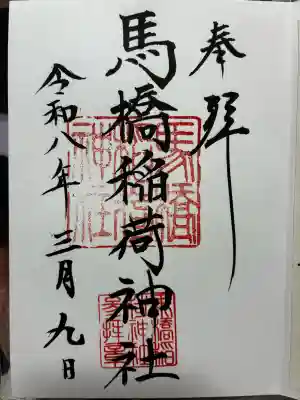 奉拝
馬橋稲荷神社
令和八年三月九日